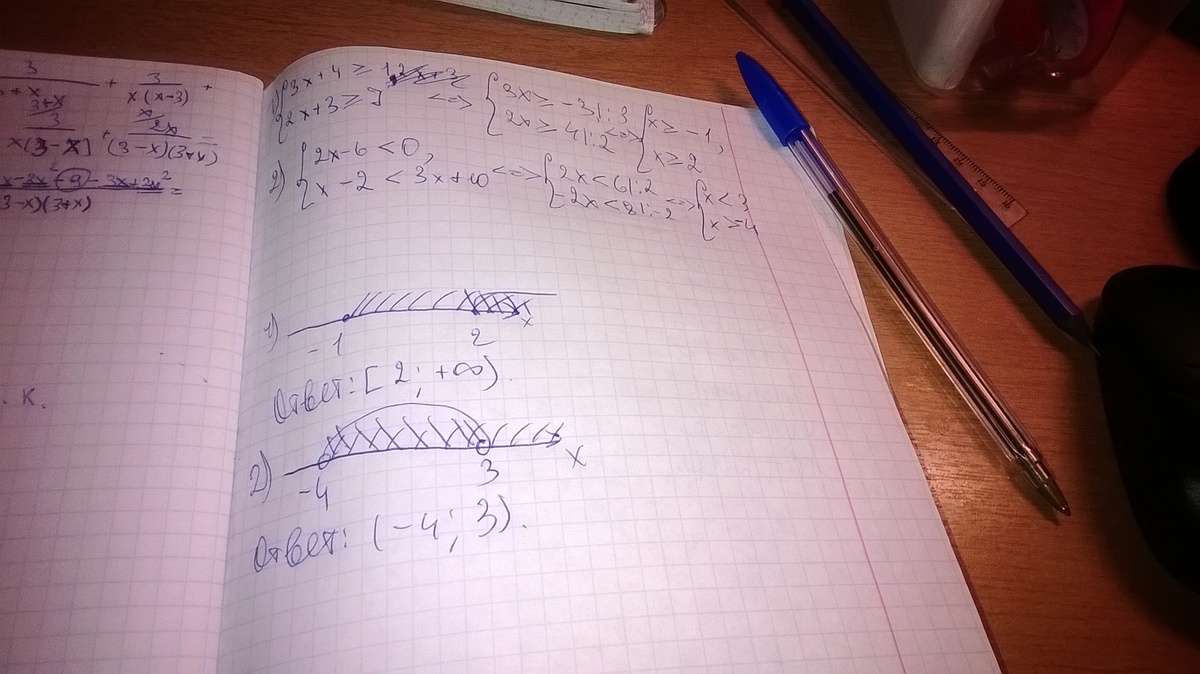 3
3
+
x(x-3)
+
3+x
x
3
2x
x(3-x)
+
(3-x)(3+x)
=
(3-x)(3+x)
. к.
1) { 3x+4 ≥ 1
{ 2x+3 ≥ 7 <=> { 3x ≥ -3 |:3
{ 2x ≥ 4 |:2 <=> { x ≥ -1,
{ x ≥ 2
2) { 2x-6 < 0,
{ x-2 < 3x+10 <=> { 2x < 6 |:2
{ -2x < 8 |:-2 <=> { x < 3
1)
-1 2 x
Ответ: [2; +∞).
2)
-4 3 x
Ответ: (-4; 3).